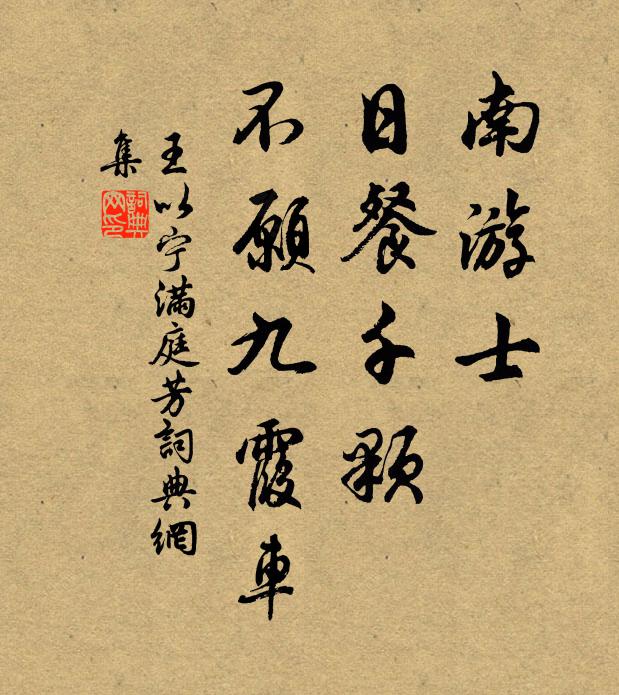 南游士
日餐千颗
不愿九霞車
王以宁满庭芳詞典網
集
詞典
网印